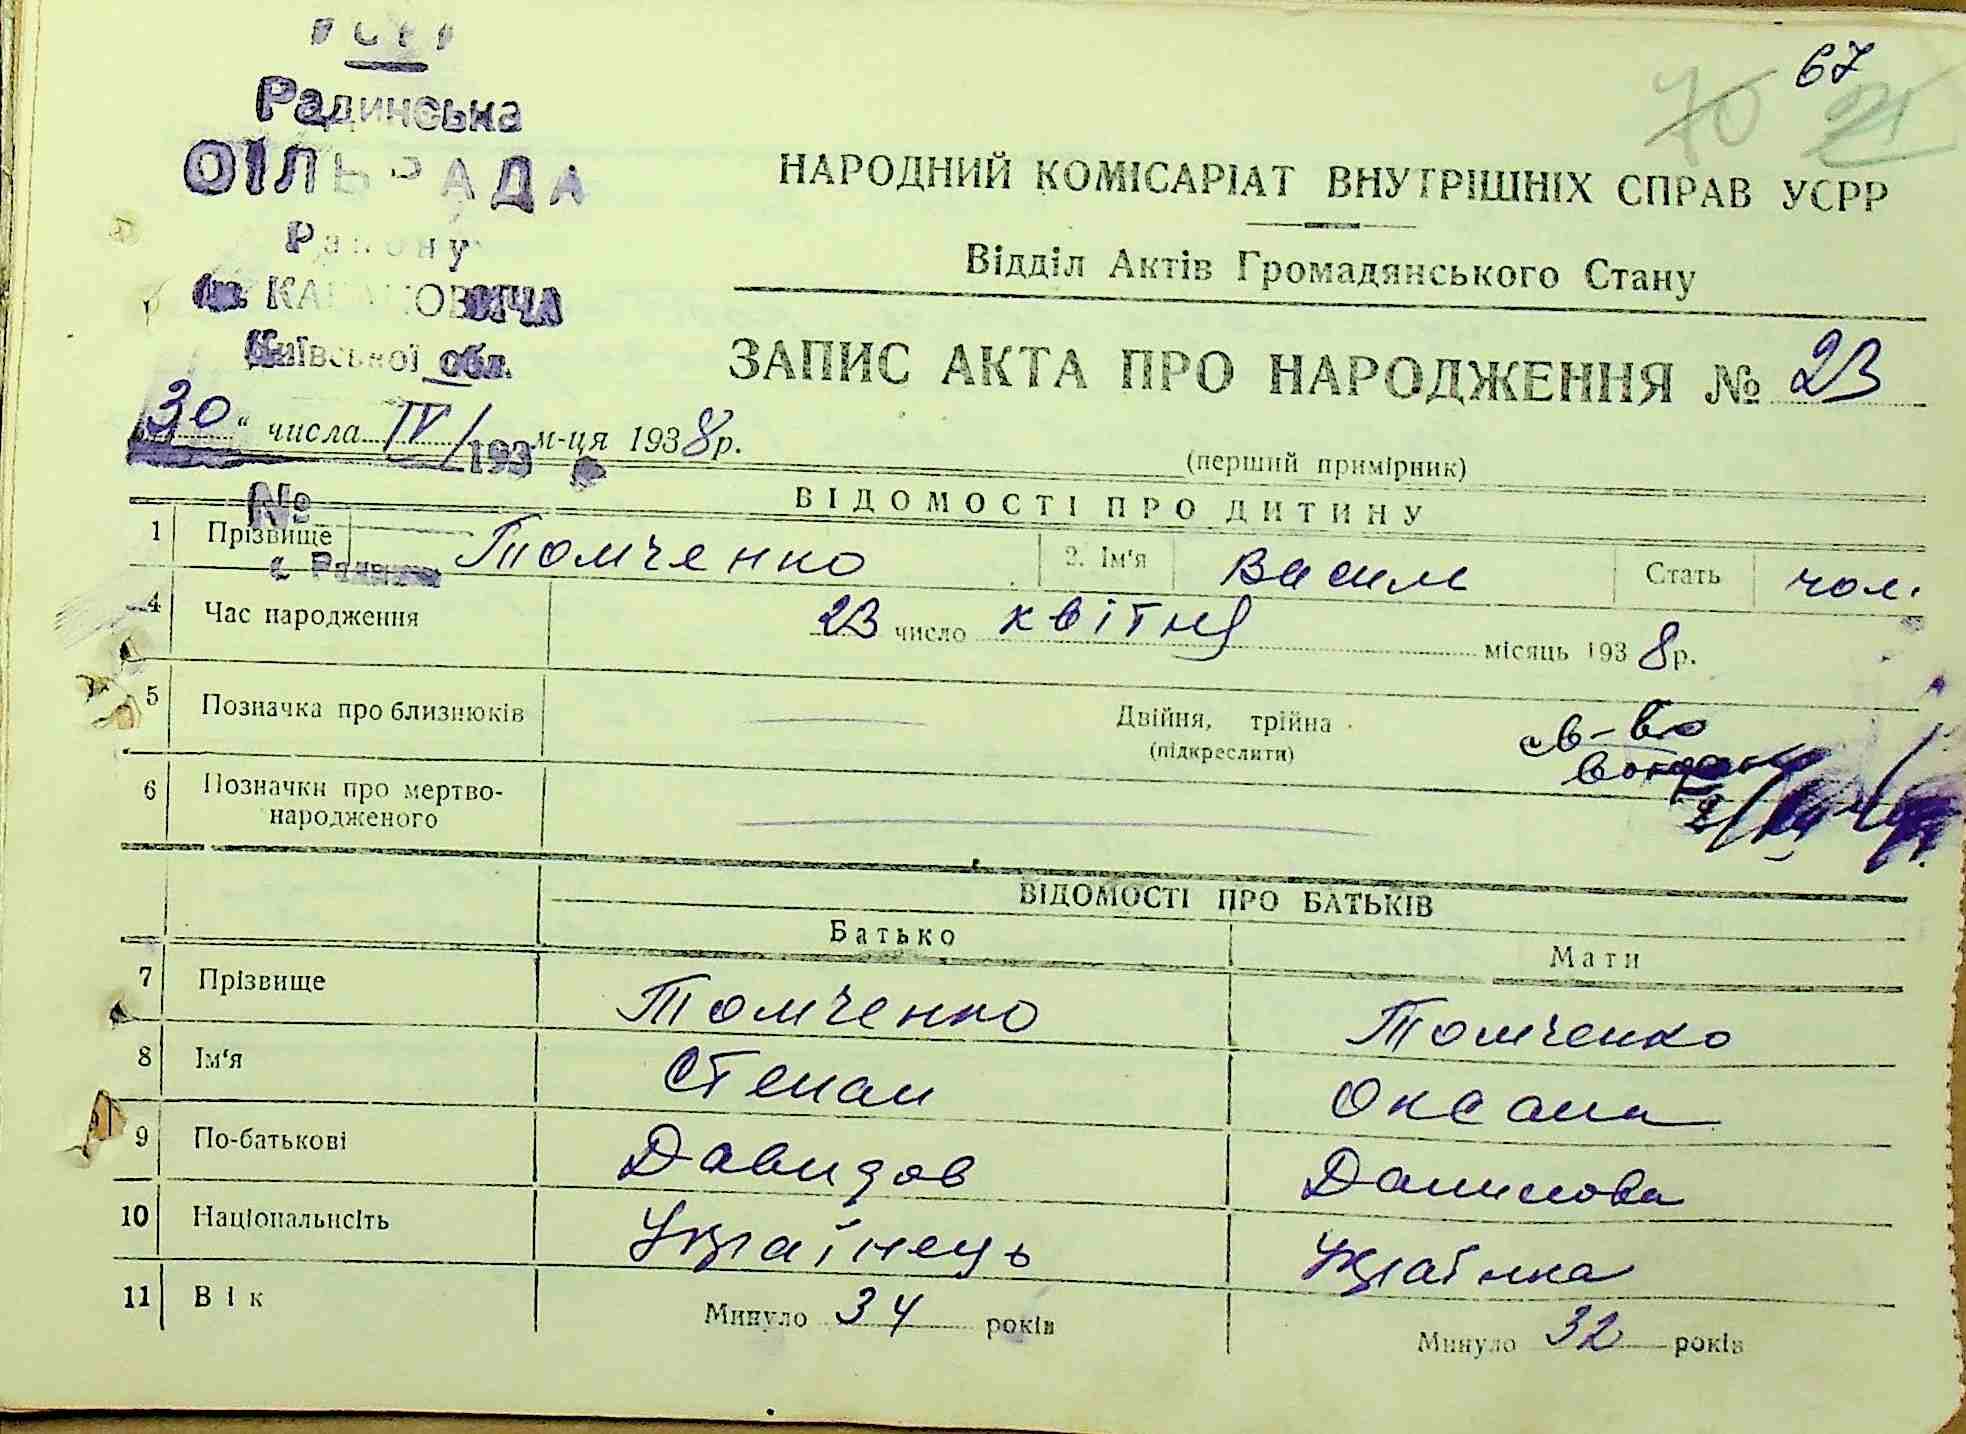 67
70
УСРР
Радинська
СІЛЬРАДА
Району
ім. КАГАНОВИЧА
Київської обл.
НАРОДНИЙ КОМІСАРІАТ ВНУТРІШНІХ СПРАВ УСРР
Відділ Актів Громадянського Стану
ЗАПИС АКТА ПРО НАРОДЖЕННЯ № 23
30 " числа IV м-ця 1938 р.
193
(перший примірник)
№
ВІДОМОСТІ ПРО ДИТИНУ
1 Прізвище Томченко 2. Ім'я Васил Стать чол.
4 Час народження 23 число квітня місяць 1938 р.
5 Позначка про близнюків Двійня, трійня
(підкреслити)
св-во
6 Позначки про мертво-
народженого
ВІДОМОСТІ ПРО БАТЬКІВ
Батько Мати
7 Прізвище Томченко Томченко
8 Ім'я Степан Оксана
9 По-батькові Давидов Данилова
10 Національність Українець Українка
11 Вік Минуло 34 років Минуло 32 років